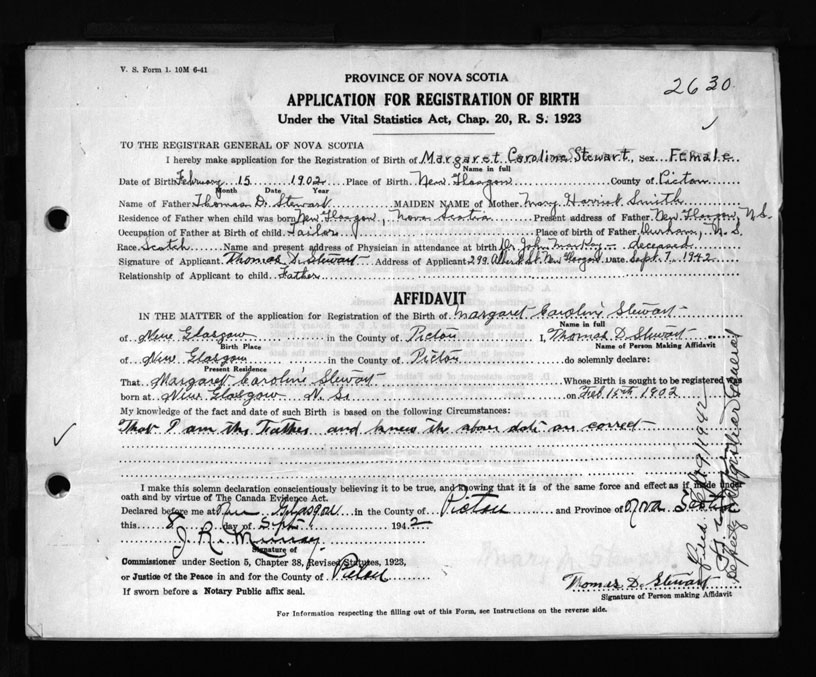 V. S. Form 1. 10M 6-41
2630
PROVINCE OF NOVA SCOTIA
APPLICATION FOR REGISTRATION OF BIRTH
Under the Vital Statistics Act, Chap. 20, R. S. 1923
TO THE REGISTRAR GENERAL OF NOVA SCOTIA
I hereby make application for the Registration of Birth of Margaret Caroline Stewart, sex Female
Name in full
Date of Birth February 15 1902 Place of Birth New Glasgow County of Pictou
Month Date Year
Name of Father Thomas D. Stewart MAIDEN NAME of Mother Mary Harriet Smith
Residence of Father when child was born New Glasgow, Nova Scotia Present address of Father New Glasgow, N.S.
Occupation of Father at Birth of child Tailor Place of birth of Father Durham, N.S.
Race Scotch Name and present address of Physician in attendance at birth Dr John deceased
Signature of Applicant Thomas D. Stewart Address of Applicant 299 St. New Glasgow Date Sept. 7 1942
Relationship of Applicant to child Father
AFFIDAVIT
IN THE MATTER of the application for Registration of the Birth of Margaret Caroline Stewart
Name in full
of New Glasgow in the County of Pictou I, Thomas D. Stewart
Birth Place Name of Person Making Affidavit
of New Glasgow in the County of Pictou do solemnly declare:
Present Residence
That Margaret Caroline Stewart Whose Birth is sought to be registered was
born at New Glasgow N. S. on Feb 15th 1902
My knowledge of the fact and date of such Birth is based on the following Circumstances:
That I am the Father and know the above date are correct
I make this solemn declaration conscientiously believing it to be true, and knowing that it is of the same force and effect as if made under
oath and by virtue of The Canada Evidence Act.
Declared before me at New Glasgow in the County of Pictou and Province of Nova Scotia
this 8 day of Sept 1942
J. R. Murray
Signature of
Commissioner under Section 5, Chapter 38, Revised Statutes, 1923,
or Justice of the Peace in and for the County of Pictou
If sworn before a Notary Public affix seal.
Thomas D. Stewart
Signature of Person making Affidavit
For Information respecting the filling out of this Form, see Instructions on the reverse side.
1942
Deputy Registrar General